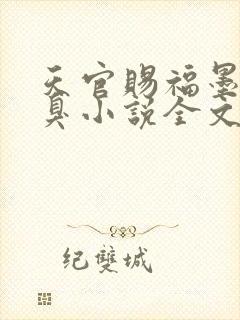 天官赐福墨
臭小说全文
纪双城